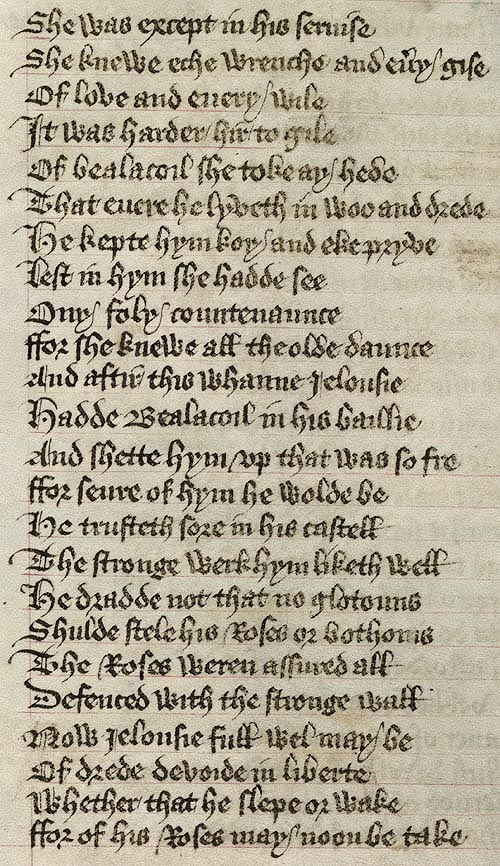 She was except in his seruise
She knewe eche wrenche and eu'y gise
Of love and euery wile
It was harder hir to gile
Of bealacoil she toke ay hede
That euere he lyveth in woo and drede
He kepte hym koy and eke pryve
Lest in hym she hadde see
Ony foly countenaunce
ffor she knewe all the olde daunce
And aftir this whanne Jelousie
Hadde Bealacoil in his baillie
And shette hym vp that was so fre
ffor seure of hym he wolde be
He trusteth sore in his castell
The stronge werk hym liketh well
He dradde not that no glotouns
Shulde stele his Roses or bothoms
The Roses weren assured all
Defenced with the stronge wall
Now Jelousie full wel may be
Of drede devoide in liberte
Whether that he slepe or wake
ffor of his Roses may noon be take